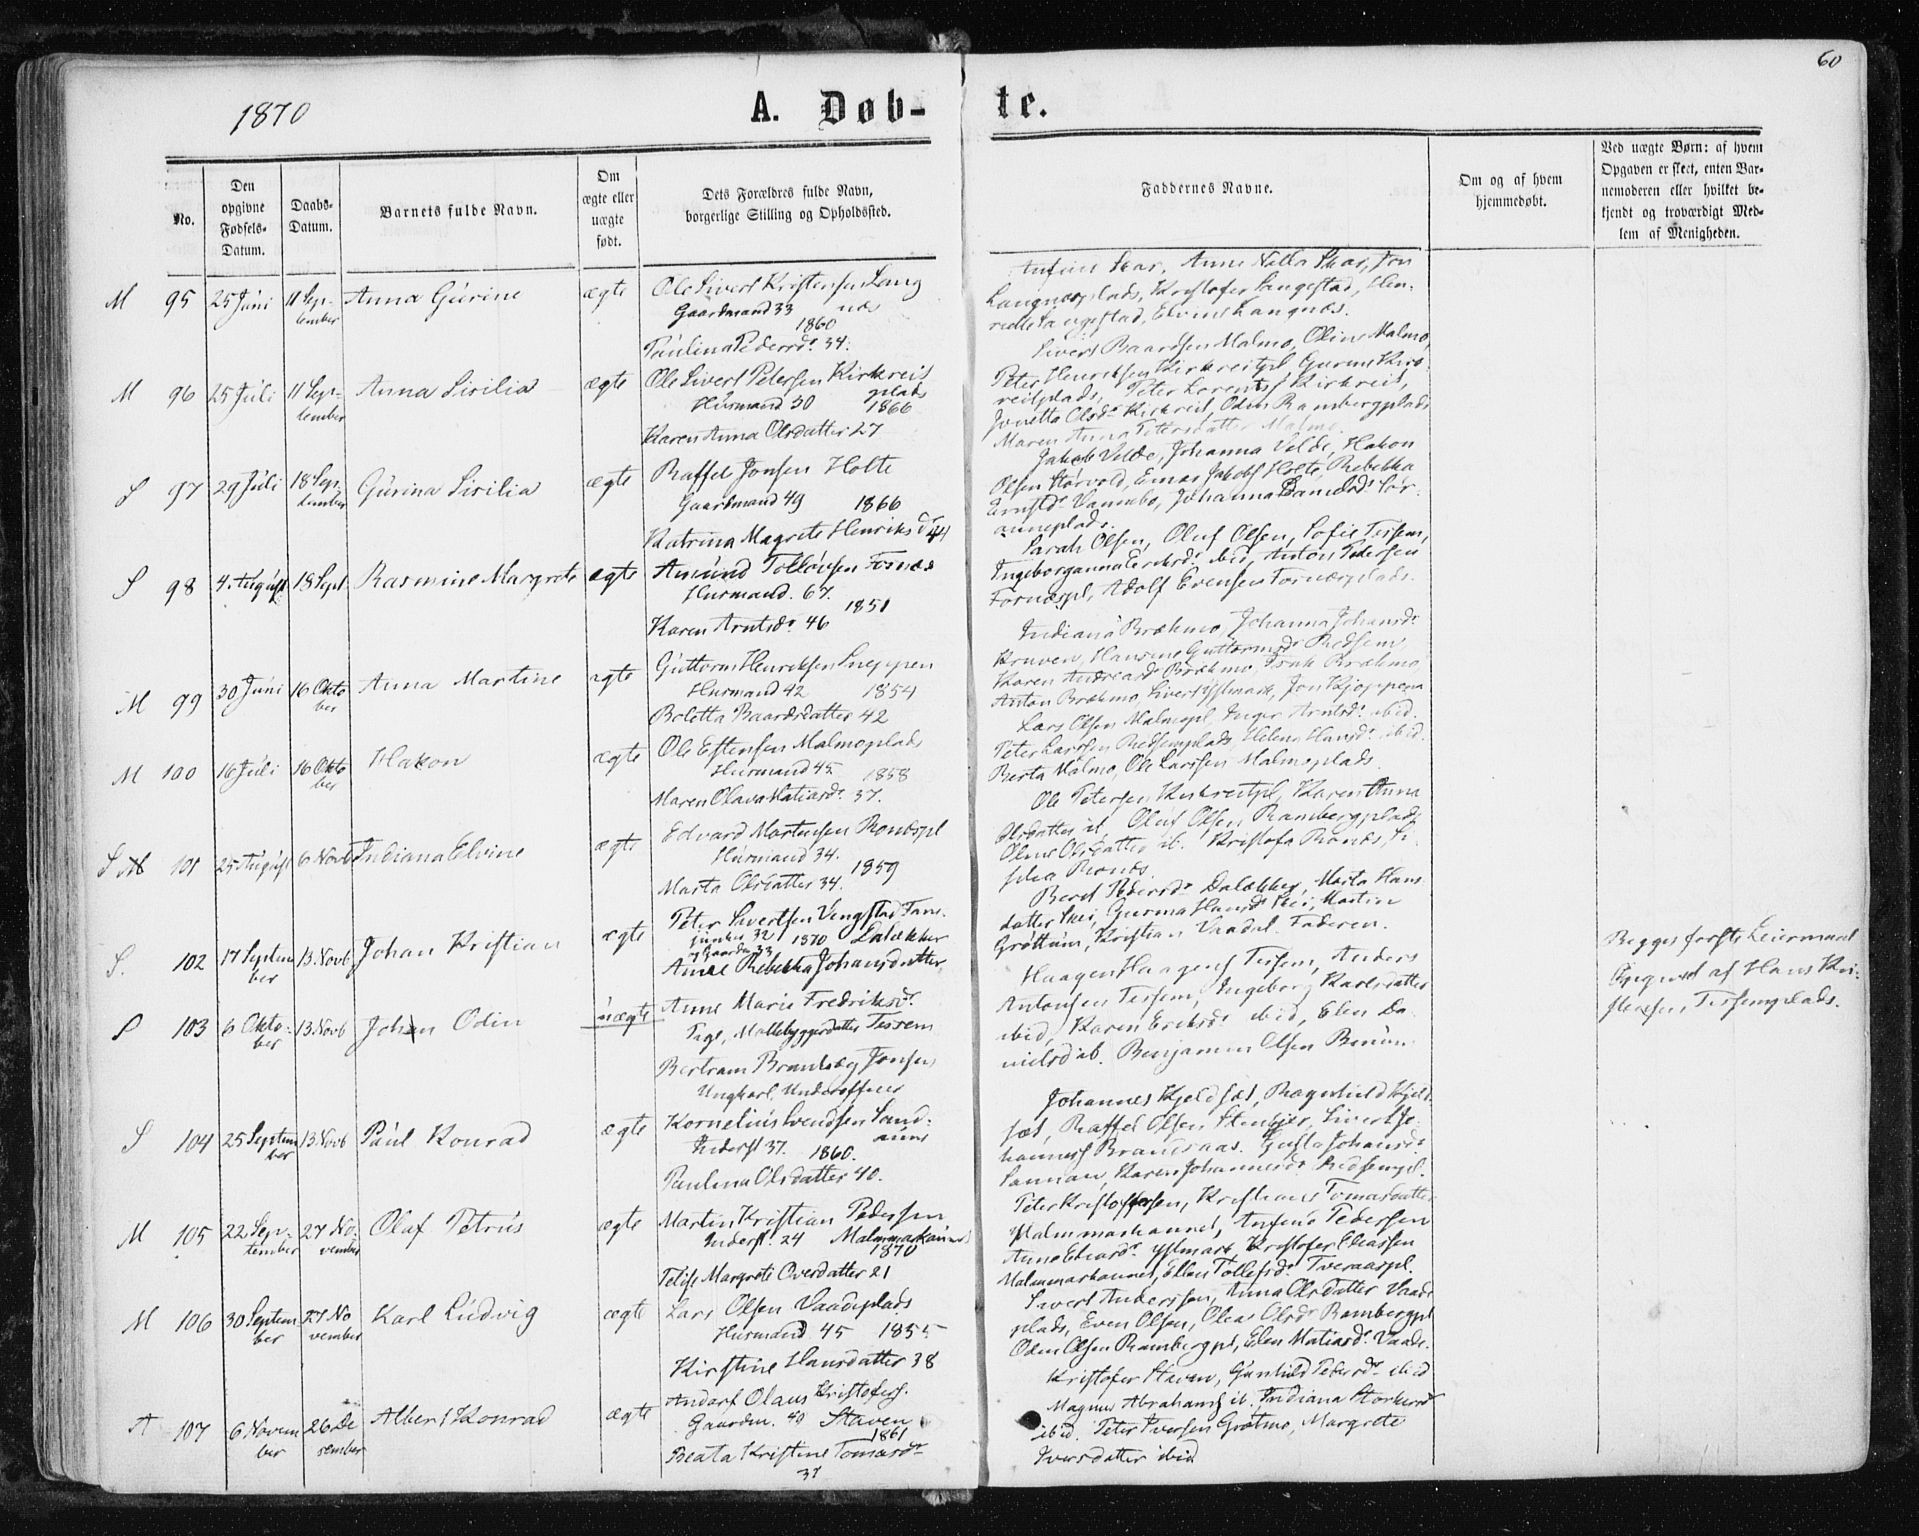 60
1870
A. Døb-
te.
No.
Den opgivne Fødsels-Datum.
Daabs-Datum.
Barnets fulde Navn.
Om ægte eller uægte født.
Dets Forældres fulde Navn, borgerlige Stilling og Opholdssted.
Faddernes Navne.
Om og af hvem hjemmedøbt.
Ved uægte Børn: af hvem Opgaven er skeet, enten Barnemoderen eller hvilket bekjendt og troværdigt Medlem af Menigheden.
M 95 25 Juni 11 September Anna Gurine ægte
Ole Sivert Kristensen Lang
Gaardmand 33 næs
1860
Paulina Pedersd. 34.
Anne Nella Skar, Jon
Langnæsplads, Kristofer Langestad, Hen-
M 96 25 Juli 11 September Anna Sirilia ægte
Ole Sivert Petersen Kirkreit
plads
Husmand 30 1866
Karen Anna Olsdatter 27
Sivert Baardsen Malmo, Oline Malmo,
Peter Henriksen Kirkreitpl, Gurine Kirk-
reitplads, Peter Lorents. Kirkreit,
Jonetta Olsdr Kirkreit, Odin Rambergplads
Maren Anna Petersdatter Malmo.
S 97 29 Juli 18 September Gurina Sirilia ægte
Raffel Jonsen Holte
Gaardmand 49 1866
Katrina Magrete Henriksdr 44
Jakob Velde, Johanna Velde, Hakon
Olsen Holte, Rebekka
S 98 4. August 18 Sept Rasmine Margrete ægte
Amund Tollousen Fornæs
Husmand. 67.
1851
Karen Arntsdr 46
Sarah Olsen, Oluf Olsen, Sofie Tessem,
ibid, Anton Pedersen
Fornæspl, Adolf Evensen Fornæsplads.
M 99 30 Juni 16 Oktober Anna Martine ægte
Guttorm Henriksen Sneppen
Husmand 42 1854
Boletta Baardsdatter 42
Indiana Bræhmo, Johanna Johansdr
Hansine Guttormsdr Redsem,
Karen Andreasdr Bræhmo,
Anton Bræhmo,
M 100 16 Juli 16 Oktober Hakon ægte
Ole Estensen Malmoplads
Husmand 45 1858
Maren Olava Matiasdr 37.
Lars Olsen Malmopl, Inger Arntsdr ibid.
Peter Larssen Redsemplads, Helene Hansdr ibid.
Berta Malmo, Ole Larssen Malmoplads.
S M 101 25 August 6 Novb Indiana Elvine ægte
Edvard Mortensen Ronæspl
Husmand 34.
1859
Marta Olsdatter 34.
Ole Petersen Kirkreitpl, Karen Anna
Olsdatter ib, Oluf Olsen Rambergplads
Oline Olsdatter ib. Kristofer Ronæs, Si-
rilia Ronæs.
S. 102 17 September 13 Novb Johan Kristian ægte
Peter Sivertsen Vengstad Fan-
junker 32 1870 Dalækker
Rebekka Johansdatter
Beret Pedersdr Dalækker, Marta Hans
datter Skei, Gurina Hansdr Skei, Martin
Grøttum, Kristian Vaadal. Faderen.
S 103 6 Oktober 13 Novb Johan Odin uægte
Anne Marie Fredriksdr
Pige, Møllebyggerdatter Tessem
Bertram Jonsen
Ungkarl, Underofficer
Haagen Haagens. Tessem, Anders
Antonsen Tessem, Ingeborg Karlsdatter
ibid, Karen Eriksdr ibid, Elen Da-
nielsd ib. Benjamin Olsen
Begges første Leiermaal
Opgivet af Hans Kri-
stensen, Tessemplads.
S 104 25 September 13 Novb Paul Konrad ægte
Kornelius Svendsen Sand-
Inderst 37. 1860.
Paulina Olsdatter 40.
Johannes Kjeldsæt, Ragnhild Kjeld-
sæt, Raffel Olsen Stenkjer, Sivert Jo-
hannes. Brandsaas. Gusta Johansdr
Sannan, Karen Johannesdr Redsempl.
M 105 22 September 27 November Olaf Petrus ægte
Martin Kristian Pedersen
Inderst. 24 Malmmarkaunet
1870
Margrete Oversdatter 21
Peter Kristoffersen, Kristiane Tomasdatter
Malmmarkaunet, Anfine Pedersen
Kristofer Eliassen
Malmmarkaunet, Ellen Tollefsdr Tveraaspl.
M 106 30 September 27 November Karl Ludvig ægte
Lars Olsen Vaadeplads
Husmand 45 1855
Kirstine Hansdatter 38
Sivert Anderssen, Anna Olsdatter Vaade
plads, Even Olsen, Olea Olsdr Rambergpl
Odin Olsen Rambergpl, Elen Matiasdr Vaade.
A 107 6 November 26 Desember Albert Konrad ægte
Olaus Kristofers.
Gaardm. 40 Staven
1861
Beata Kristine Tomasdr
37
Kristofer Staven, Gunhild Pedersdr ibid
Magnus Abrahams. ib. Indiana
ibid. Peter Iversen Grøtmo, Margrete
Iversdatter ibid